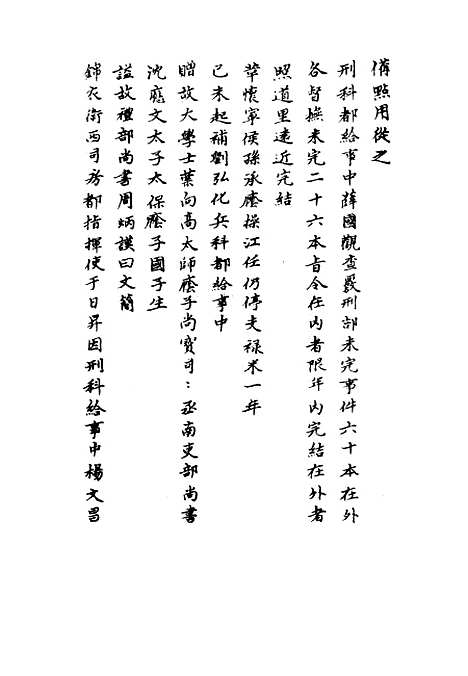 備點用從之
刑科都給事中薛國觀查覈刑部未完事件六十本在外
各督撫未完二十六本旨令在內者限年內完結在外者
照道里遠近完結
革懷寧侯孫承廕操江任仍停支祿米一年
己未起補劉弘化兵科都給事中
贈故大學士葉向高太師廕子尚寶司：丞南吏部尚書
沈應文太子太保廕子國子生
諡故禮部尚書周炳謨曰文簡
錦衣衛西司房都指揮使于日昇因刑科給事中楊文昌